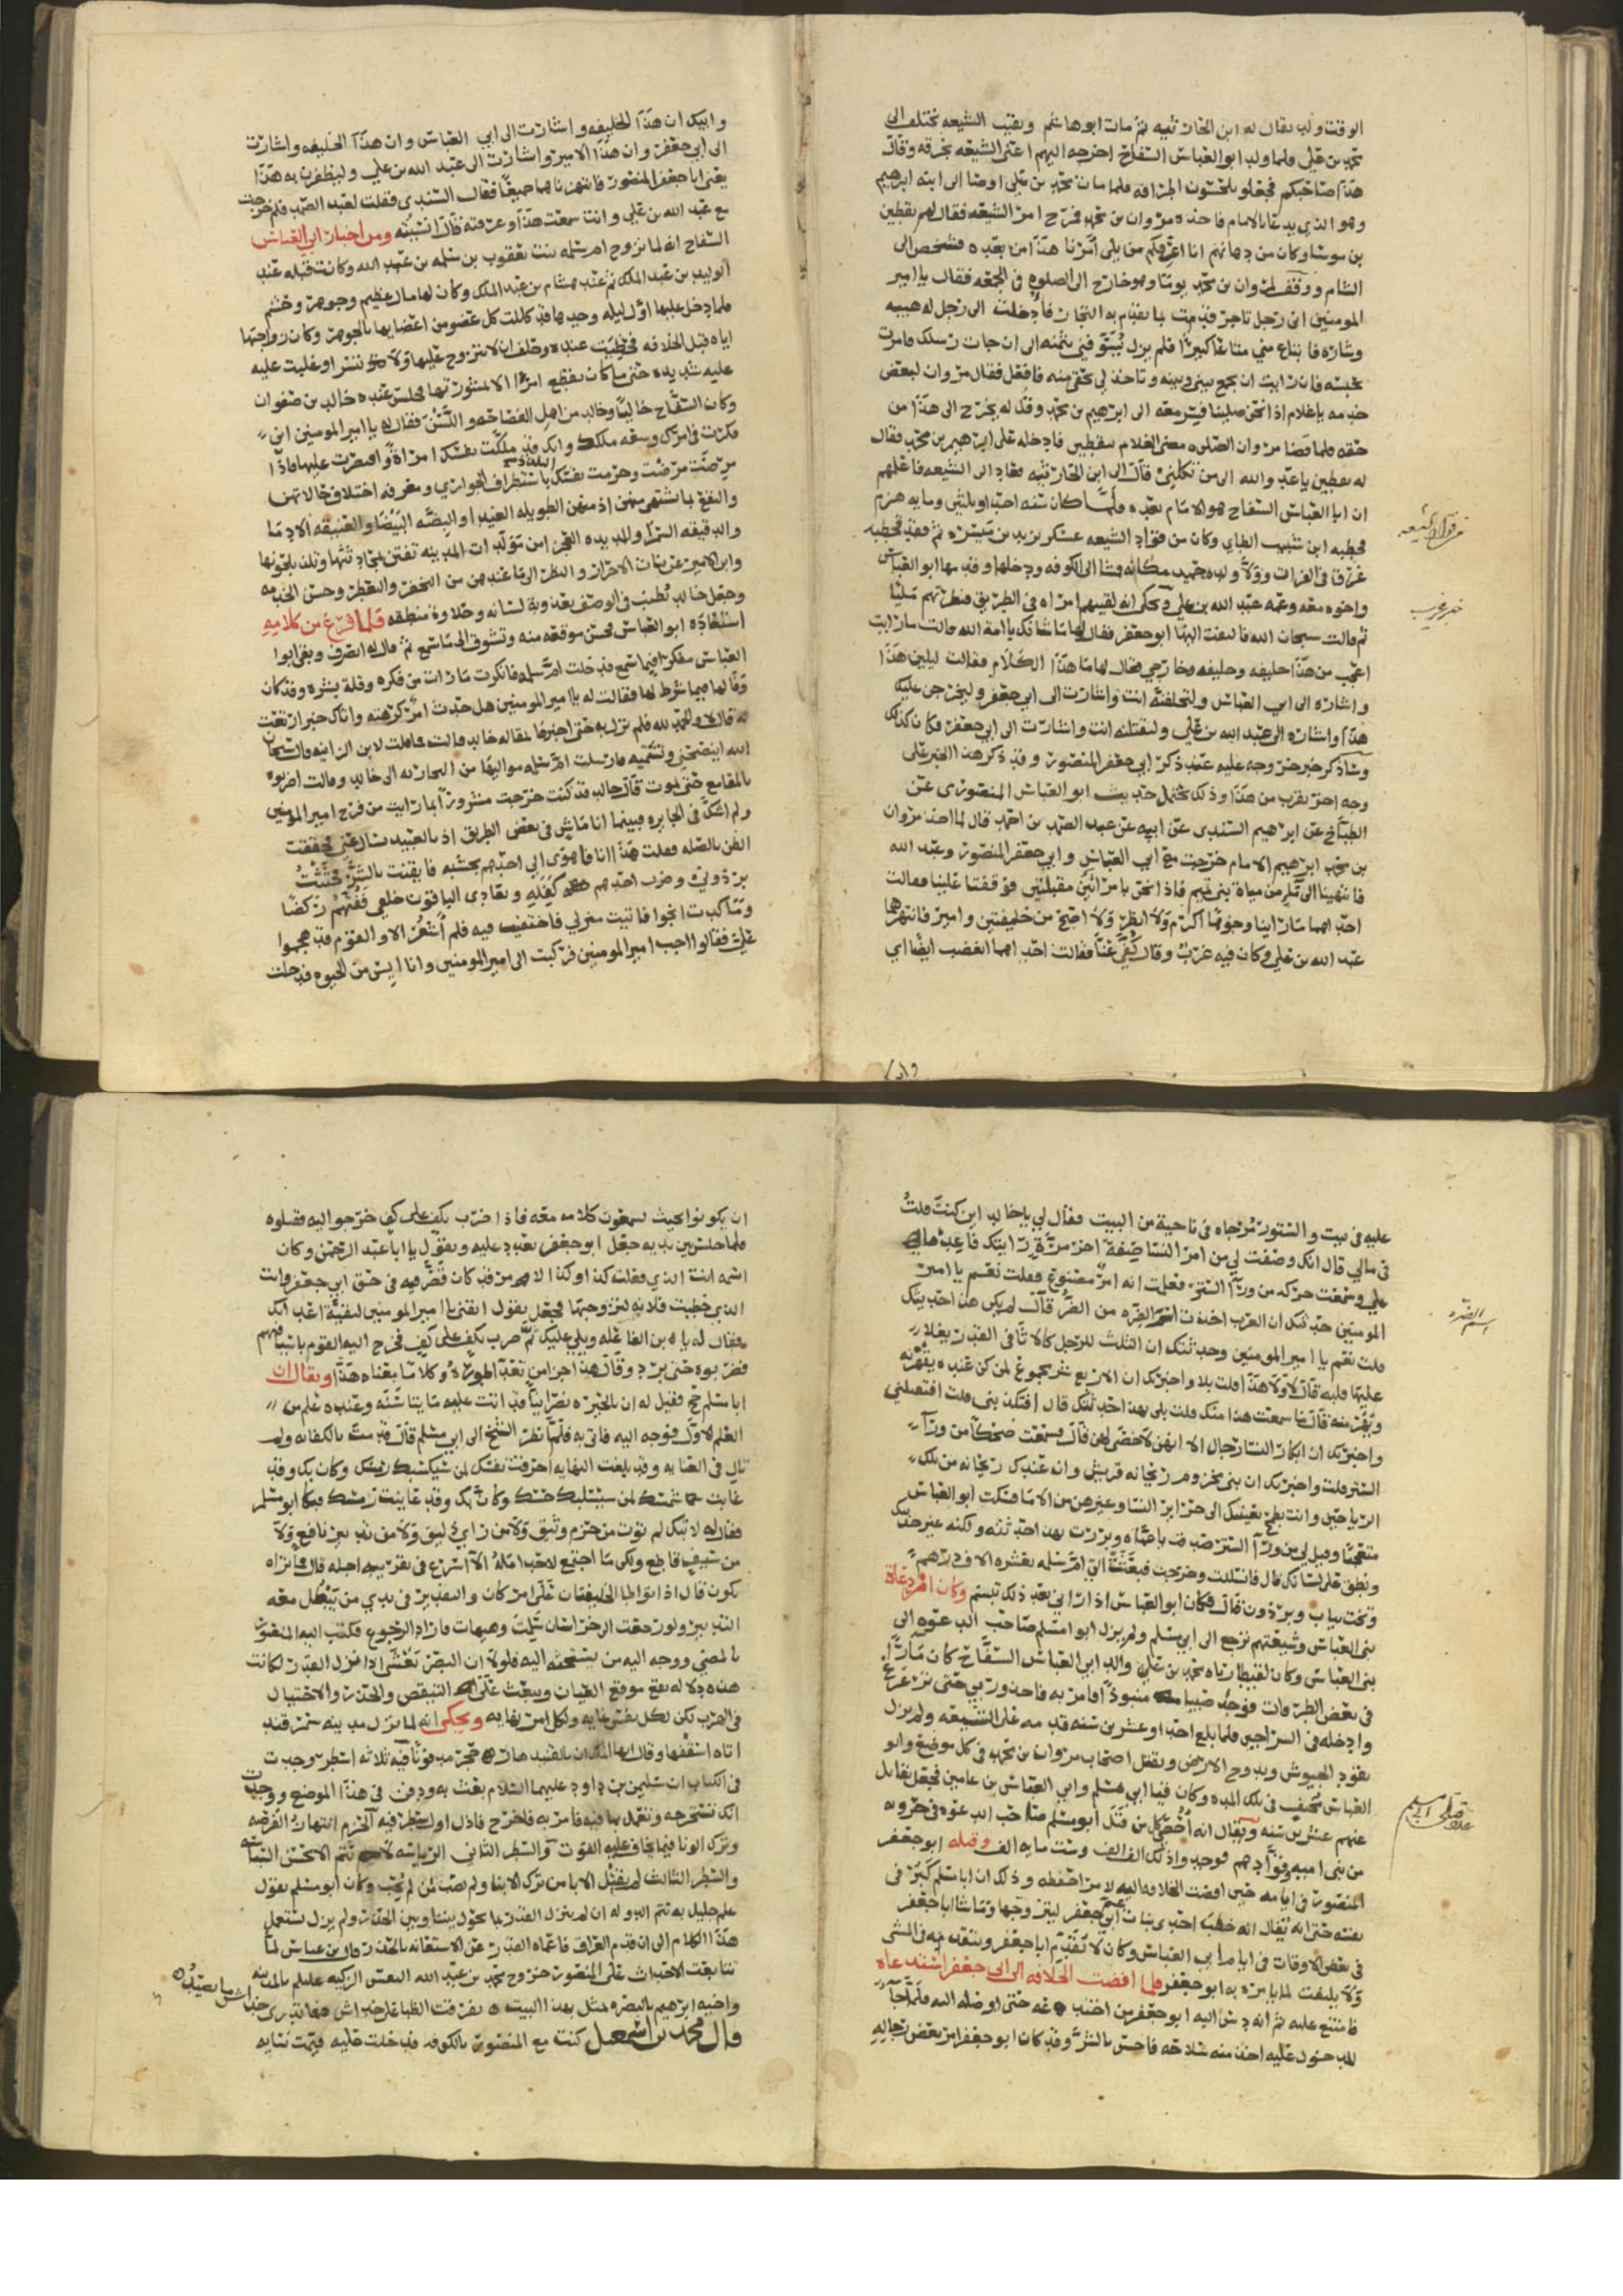 الوقت ولد يقال له ابن الحارثيه ثم مات ابو هاشم وبقيت الشيعه تختلف الى
محمد بن علي فلما ولد ابو العباس السفاح اخرجه اليهم اعني الشيعه بخرقه وقال
هذا صاحبكم فجعلوا يلحسون اطرافه فلما مات محمد بن علي اوصا الى ابنه ابرهيم
وهو الذي يدعا بالامام فاخذه مروان بن محمد فخرج امر الشيعه فقال لهم يقطين
بن موسا وكان من دهاتهم انا اعرفكم من يلي امرنا هذا من بعده فشخص الى
الشام ووقف لمروان بن محمد يوما وهو خارج الى الصلوه في الجمعه فقال يا امير
المومنين اني رجل تاجر قدمت بما يقدم به التجار فادخلت الى رجل له هيبه
وشاره فابتاع مني متاعا كبيرا فلم يزل يسوفني بثمنه الى ان جات رسلك فامرت
بحبسه فان رايت ان يجمع بيني وبينه وتاخذ لي بحقي منه فافعل فقال مروان لبعض
خدمه يا غلام اذا نحن صلينا فسر معه الى ابرهيم بن محمد وقل له يخرج الى هذا من
حقه فلما قضا مروان الصلوه مضى الغلام بيقطين فادخله على ابرهيم بن محمد فقال
له يقطين يا عدو الله الى من تكلني قال الى ابن الحارثيه فعاد الى الشيعه فاعلمهم
ان ابا العباس السفاح هو الامام بعده فلما كان سنه احد وثلثين ومايه هزم
قحطبه ابن شبيب الطاي وكان من قواد الشيعه عسكر يزيد بن هبيره ثم فقد قحطبه
غرقا في الفرات وولا ولده حميد مكانه ومشا الى الكوفه ودخلها وقد مها ابو العباس
واخوه معه وعمه عبد الله بن علي ويحكى انه لقيهم امراه في الطريق فنظرتهم مليا
ثم قالت سبحان الله فالتفت اليها ابو جعفر فقال لها ما شانك يا امة الله قالت ما رايت
اعجب من هذا خليفه وخليفه وخارجي فقال لها ما هذا الكلام فقالت ليلين هذا
واشاره الى ابي العباس ولتخلفنه انت واشارت الى ابي جعفر وليخرجن عليك
هذا واشاره الى عبد الله بن علي ولتقتلنه انت واشارت الى ابي جعفر فكان كذلك
وساذكر خبر خروجه عليه عند ذكر ابي جعفر المنصور وقد ذكر هذا الخبر على
وجه اخر يقرب من هذا وذلك يحتمل حديث ابو العباس المنصوري عن
الطباخ عن ابرهيم السندي عن ابيه عن عبد الصمد بن احمد قال لما اخذ مروان
بن محمد ابرهيم الامام خرجت مع ابي العباس وابي جعفر المنصور وعبد الله
فانتهينا الى تل من مياة بني تميم فاذا نحن بامراتين مقبلتين فوقفتا علينا فقالت
احداهما ما راينا وجوها اكرم ولا انظر ولا اصبح من خليفتين وامير فانتهرهما
عبد الله بن علي وكان فيه عزب وقال كفي عنا فقالت احداهما اتغضب ايضا اي
من قواد الشيعه
خبر غريب
وابيك ان هذا الخليفه واشارت الى ابي العباس وان هذا الخليفه واشارت
الى ابي جعفر وان هذا الامير واشارت الى عبد الله بن علي وليظفرن به هذا
يعني ابا جعفر المنصور فانتهرناهما جميعا فقال السندي فقلت لعبد الصمد فلم خرجت
مع عبد الله بن علي وانت سمعت هذا وعرفته قال انسيته ومن اخبار ابي العباس
السفاح انه لما تزوج ام سلمه بنت يعقوب بن سلمه بن عبد الله وكانت قبله عند
الوليد بن عبد الملك ثم عند هشام بن عبد الملك وكان لها مال عظيم وجوهر وحشم
فلما دخل عليها اول ليله وجدها قد كللت كل عضو من اعضايها بالجوهر وكان زواجها
اياه قبل الخلافه فحظيت عنده وحلف ان لا يتزوج عليها ولا يتسرا وغلبت عليه
غلبه شديده حتى ما كان يقطع امرا الا بمشورتها فجلس عنده خالد بن صفوان
وكان السفاح خاليا وخالد من اهل الفصاحه واللسن فقال له يا امير المومنين اني
فكرت في امرك وسعه ملكك وانك قد ملكت نفسك امراة واقتصرت عليها فاذا
مرضت مرضت وحرمت نفسك التلذذ باستطراف الجواري ومعرفه اختلاف حالاتهن
والتمتع بما تشتهي منهن اذ منهن الطويله الغيدا والبضه البيضا والعتيقه الادما
والدقيقه السمرا والمديده العجزا من مولدات المدينه تفتن بمحادثتها وتلذ بخلوتها
واين الامير عن بنات الاحرار والنظر الى ما عندهن من الخفر والتعطر وحسن الخدمه
وجعل خالد يطنب في الوصف بعذوبة لسانه وحلاوة منطقه فلما فرغ من كلامه
استعاده ابو العباس فحسن موقعه منه وتشوف الى سامع ثم قال له انصرف وبقي ابو
العباس مفكرا فيما سمع فدخلت ام سلمه فانكرت ما رات من فكره وقلة بشره وقد كان
وفا لها فيما شرط لها فقالت له يا امير المومنين هل حدث امر كرهته واتاك خبر ارتعت
له قال لا والحمد لله فلم تزل به حتى اخبرها بمقاله خالد قالت فما قلت لابن الزانيه قال سبحان
الله اينصحني وتشتميه فارسلت ام سلمه مواليها من البخاريه الى خالد وقالت اضربوه
بالمقامع حتى يموت قال خالد قد كنت خرجت مسرورا بما رايت من فرح امير المومنين
ولم اشك في الجايزه فبينما انا ماش في بعض الطريق اذ بالعبيد تسال عني فحققت
الظن بالصله فقلت هذا انا فاهوى الي احدهم بخشبه فايقنت بالشر فحثثت
برذوني وضرب احدهم كفله وتعادى الباقون خلفي ففتهم ركضا
وما كدت انجوا فاتيت منزلي فاختفيت فيه فلم اشعر الا والقوم قد هجموا
علي فقالوا اجب امير المومنين فركبت الى امير المومنين وانا ايس من الحيوه فدخلت
عليه في بيت والستور مرخاه في ناحية من البيت فقال لي يا خالد اين كنت قلت
في مالي قال انك وصفت لي من امر النسا صفة اخر مرة رايتك فاعد
علي وسمعت حركه من ورا الستر فعلمت انه امر مصنوع فقلت نعم يا امير
المومنين حدثتك ان العرب اخذت اسم الضره من الضر قال لم يكن هذا حديثك
قلت نعم يا امير المومنين وحدثتك ان الثلث للرجل كالاثافي القدر يغلا
عليها قلبه قال لا ولا هذا قلت بلا واخبرتك ان الاربع شر مجموع لمن كن عنده يشهرنه
ويهرمنه قال ما سمعت هذا منك قلت بلى بهذا احدثتك قال افتكذبني قلت افتقتلني
واخبرتك ان ابكار النسا رجال الا انهن لا خصى لهن قال فسمعت ضحكا من ورا
الستر قلت واخبرتك ان بني مخزوم ريحانه قريش وانه عندك ريحانه من تلك
الرياحين وانت تطمح بعينيك الى حراير النسا وغيرهن من الاما فسكت ابو العباس
متعجبا وقيل لي من ورا الستر صدقت يا عماه وبررت بهذا حدثته ولكنه غير حديثك
ونطق على لسانك قال فانسللت وخرجت فبعثت الي ام سلمه بعشره الاف درهم
وتخت ثياب وبرذون قال فكان ابو العباس اذا راني بعد ذلك تبسم وكان امر دعاة
بني العباس وشيعتهم ترجع الى ابي مسلم ولم يزل ابو مسلم صاحب الدعوه الى
بني العباس وكان لقيطا رباه محمد بن علي والد ابي العباس السفاح كان مارا
في بعض الطرقات فوجد صبيا منبوذا فامر به فاخذ وربي حتى ترعرع
وادخله في السراجين فلما بلغ احد وعشرين سنه قدمه على الشيعه ولم يزل
يقود الجيوش ويدوخ الارض ويقتل اصحاب مروان بن محمد في كل موضع وابو
العباس مختف في تلك المده وكان فتيا ابي مسلم وابي العباس بن عامين فجعل يقاتل
عنهم عشرين سنه ويقال انه احصي كل من قتل ابو مسلم صاحب الدعوه في حروبه
من بني اميه وقوادهم فوجدوا ذلك الف الف وست مايه الف وقتله ابو جعفر
المنصور في ايامه حين افضت الخلافه اليه لامر احفظه وذلك ان ابا مسلم كبر في
نفسه حتى انه يقال انه خطب احدى بنات عم ابي جعفر ليتزوجها وتماشا ابا جعفر
في بعض الاوقات في ايام ابي العباس وكان لا يقدم ابا جعفر ويتقدمه في المشي
ولا يلتفت لما يامره به ابو جعفر فلما افضت الخلافه الى ابي جعفر استدعاه
فامتنع عليه ثم انه دس اليه ابو جعفر من اختدعه حتى اوصله اليه فلما جا
للدخول عليه اخذ منه سلاحه فاحس بالشر وقد كان ابو جعفر امر بعض رجاله
اسم الضره
ان يكونوا بحيث يسمعون كلامه معه فاذا ضرب بكف على كف خرجوا اليه فقتلوه
فلما جلس بين يديه جعل ابو جعفر يعدد عليه ويقول يا ابا عبد الرحمن وكان
اسمه انت الذي فعلت كذا وكذا لامور قد كان قصر فيه في حق ابي جعفر وانت
الذي خطبت فلانه لتزوجتها فجعل يقول ابقني يا امير المومنين لبقية اعدايك
فقال له يا بن الفاعله وبلي عليك ثم ضرب بكف على كف فخرج اليه القوم باسيافهم
فضربوه حتى برد وقال هذا جزا من تعدا طوره وكلاما بمعناه هذا ويقال ان
ابا مسلم حج فقيل له ان بالحيره نصرانيا قد اتت عليه مايتا سنه وعنده علم من
العلم الاول فوجه اليه فاتي به فلما نظر الشيخ الى ابي مسلم قال قمت بالكفايه ولم
تال في العنايه وقد بلغت النهايه احرقت نفسك لمن
فقال له لا تبك لم توت من حزم وثيق ولا من راي لبيق ولا من تدبير نافع ولا
من سيف قاطع ولكن ما اجتمع لاحد امله الا اسرع في تفريقه اجله قال فمتى تراه
يكون قال اذا تواطا الخليفتان على امر كان والتقدير في يدي من يبطل معه
التدبير ولو رجعت الى خراسان سلمت وهيهات فاراد الرجوع فكتب اليه المنصور
بالمضي ووجه اليه من يستحثه اليه فلولا ان البصر يعشى اذا نزل القدر لكانت
هذه دلاله تقع موقع العيان وتبعث على التيقض والحذر والاحتيال
في الهرب لكن لكل نفس غايه ولكل امر نهايه ويحكى انه لما نزل مدينه سمرقند
اتاه اسقفها وقال ايها الملك ان بالقندهار حجر مدفونا فيه ثلاثه اسطر وجدت
في الكتاب ان سليمن بن داود عليهما السلام بعث به ودفن في هذا الموضع ووجدت
انك تستخرجه وتعمل بما فيه فامر به فاخرج فاذا اول سطر فيه الحزم انتهاز الفرصه
وترك الونا فيما يخاف عليه الفوت والسطر الثاني الرياسه لا تتم الا بحسن السياسه
والسطر الثالث لم يقتل الابا من ترك الابنا ولم يصب من لم يحب وكان ابو مسلم يقول
علم جليل به تتم الدوله ان لم ينزل القدر بما يحول بيننا وبين الحذر ولم يزل يستعمل
هذا الكلام الى ان قدم العراق فاعماه القدر عن الاستعانه بالحذر قال بن عباس لما
تتابعت الاحداث على المنصور خروج محمد بن عبد الله النفس الزكيه عليلم بالمدينه
واخيه ابرهيم بالبصره تمثل بهذا البيت تفرقت الظبا على خداش فما يدري خداش ما يصيد
قال محمد بن اسمعيل كنت مع المنصور بالكوفه فدخلت عليه فيمن